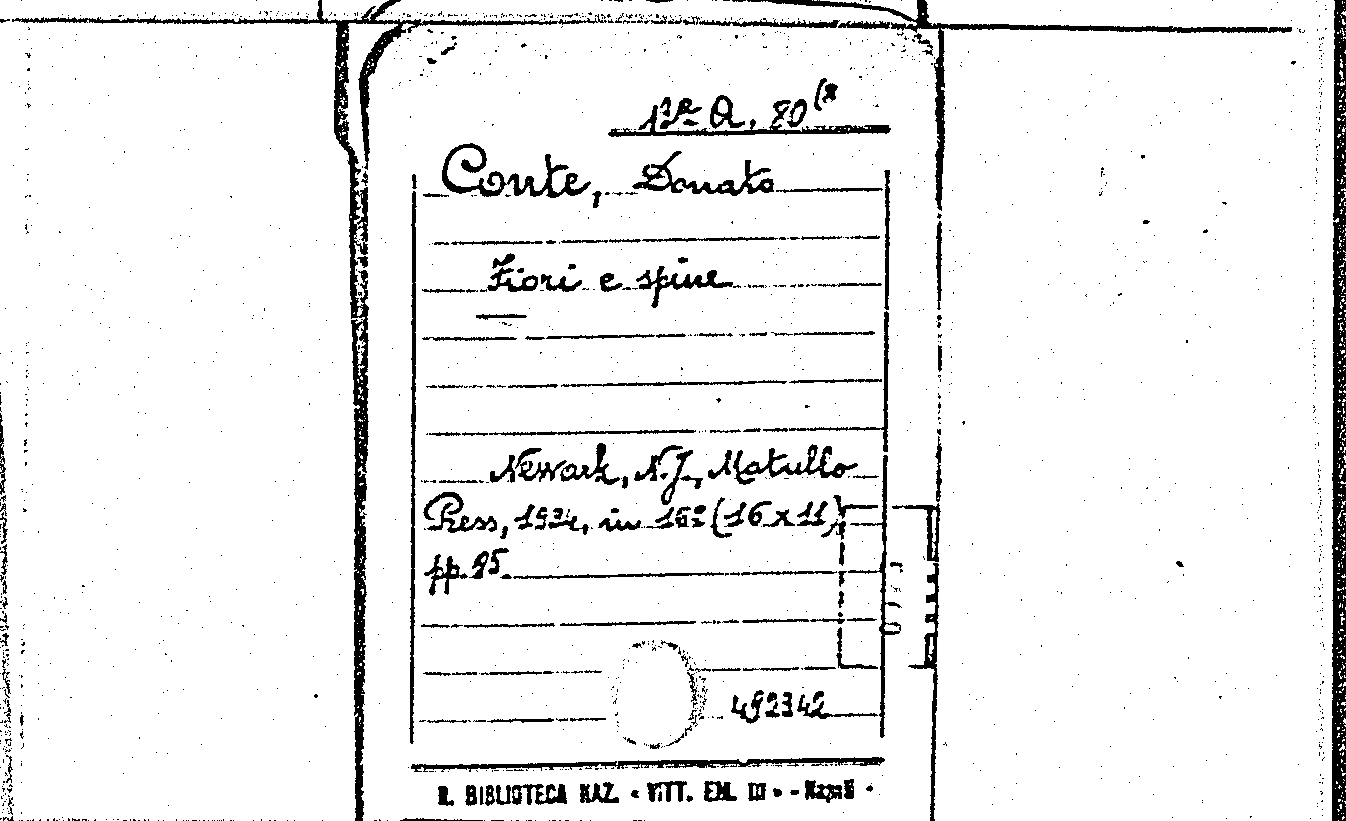 Bª Q. 80 (x
Conte, Donato
Fiori e spine
Newark, N.J., Matullo
Press, 1934, in 16º (16 x 11)
pp. 95
492342
R. BIBLIOTECA NAZ. « VITT. EM. III » - Napoli -